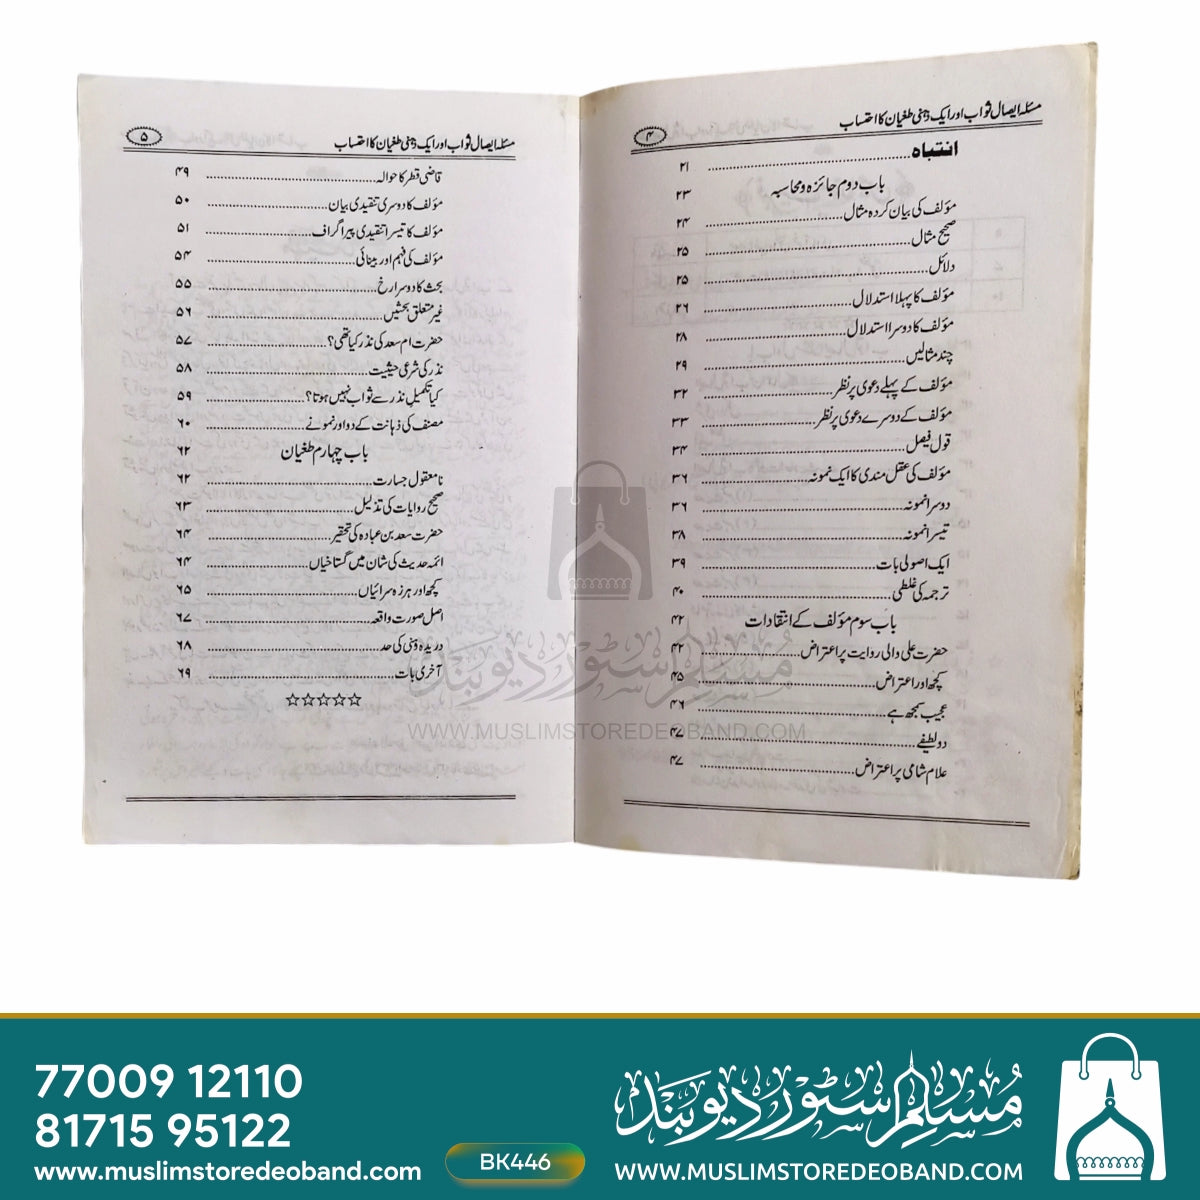 مسئلہ ایصال ثواب اور ایک ذہنی طغیان کا احتساب
۴
انتباہ ........ ۲۱
باب دوم جائزہ و محاسبہ ۲۳
مؤلف کی بیان کردہ مثال ........ ۲۴
صحیح مثال ........ ۲۵
دلائل ........ ۲۵
مؤلف کا پہلا استدلال ........ ۲۶
مؤلف کا دوسرا استدلال ........ ۲۸
چند مثالیں ........ ۲۹
مؤلف کے پہلے دعوی پر نظر ........ ۳۲
مؤلف کے دوسرے دعوی پر نظر ........ ۳۳
قول فیصل ........ ۳۴
مؤلف کی عقل مندی کا ایک نمونہ ........ ۳۶
دوسرا نمونہ ........ ۳۶
تیسرا نمونہ ........ ۳۸
ایک اصولی بات ........ ۳۹
ترجمہ کی غلطی ........ ۴۰
باب سوم مؤلف کے انتقادات ۴۲
حضرت علی والی روایت پر اعتراض ........ ۴۲
کچھ اور اعتراض ........ ۴۵
عجیب سمجھ ہے ........ ۴۶
دو لطیفے ........ ۴۷
علام شامی پر اعتراض ........ ۴۷
مسئلہ ایصال ثواب اور ایک ذہنی طغیان کا احتساب
۵
قاضی قطر کا حوالہ ........ ۴۹
مؤلف کا دوسری تنقیدی بیان ........ ۵۰
مؤلف کا تیسرا تنقیدی پیراگراف ........ ۵۱
مؤلف کی فہم اور بینائی ........ ۵۴
بحث کا دوسرا رخ ........ ۵۵
غیر متعلق بحثیں ........ ۵۶
حضرت ام سعد کی نذر کیا تھی؟ ........ ۵۷
نذر کی شرعی حیثیت ........ ۵۸
کیا تکمیل نذر سے ثواب نہیں ہوتا؟ ........ ۵۹
مصنف کی ذہانت کے دو اور نمونے ........ ۶۰
باب چہارم طغیان ۶۲
نامعقول جسارت ........ ۶۲
صحیح روایات کی تذلیل ........ ۶۳
حضرت سعد بن عبادہ کی تحقیر ........ ۶۴
ائمہ حدیث کی شان میں گستاخیاں ........ ۶۴
کچھ اور ہرزہ سرائیاں ........ ۶۵
اصل صورت واقعہ ........ ۶۷
دریدہ ذہنی کی حد ........ ۶۸
آخری بات ........ ۶۹
☆☆☆☆☆
مسلم سٹور دیوبند
WWW.MUSLIMSTOREDEOBAND.COM
77009 12110
81715 95122
www.muslimstoredeoband.com
BK446
مسلم سٹور دیوبند
WWW.MUSLIMSTOREDEOBAND.COM